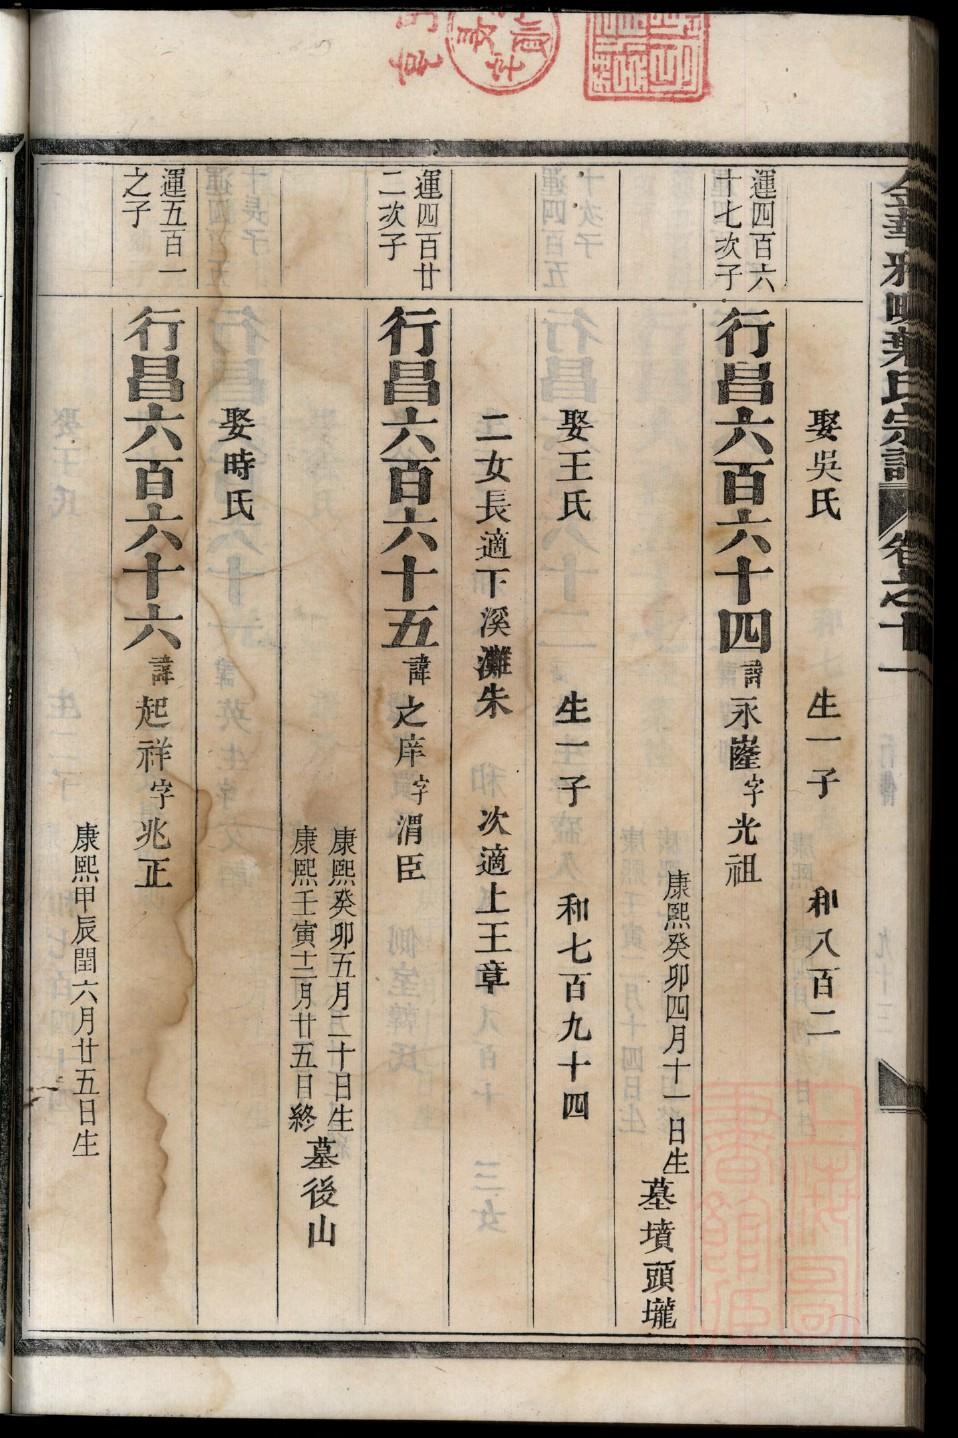 娶吳氏　生一子　和八百二
運四百六十七次子
行昌六百六十四諱永嶐字光祖
康熙癸卯四月十一日生　墓墳頭壠
娶王氏　生一子　和七百九十四
二女長適下溪灘朱　次適上王章
運四百廿二次子
行昌六百六十五諱之庠字渭臣
康熙癸卯五月二十日生
康熙壬寅十二月廿五日終
墓後山
娶時氏
運五百一之子
行昌六百六十六諱起祥字兆正
康熙甲辰閏六月廿五日生